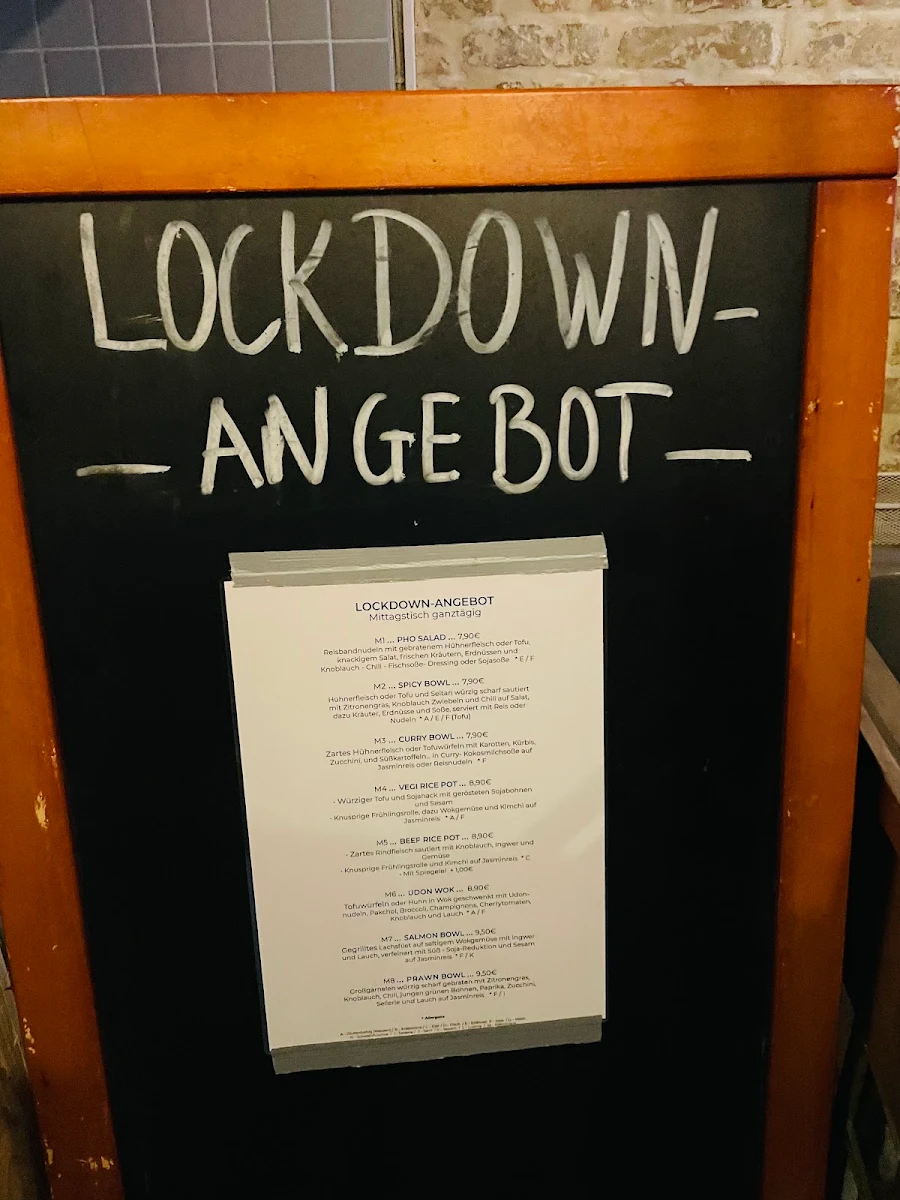 LOCKDOWN-
- ANGEBOT -
LOCKDOWN-ANGEBOT
Mittagstisch ganztägig
M1 ... PHO SALAD ... 7,90€
Reisbandnudeln mit gebratenem Hühnerfleisch oder Tofu,
knackigem Salat, frischen Kräutern, Erdnüssen und
Knoblauch - Chili - Fischsoße- Dressing oder Sojasoße *E / F
M2 ... SPICY BOWL ... 7,90€
Hühnerfleisch oder Tofu und Seitan würzig scharf sautiert
mit Zitronengras, Knoblauch Zwiebeln und Chili auf Salat,
dazu Kräuter, Erdnüsse und Soße, serviert mit Reis oder
Nudeln *A / E / F (Tofu)
M3 ... CURRY BOWL ... 7,90€
Zartes Hühnerfleisch oder Tofuwürfeln mit Karotten, Kürbis,
Zucchini, und Süßkartoffeln... in Curry- Kokosmilchsoße auf
Jasminreis oder Reisnudeln *F
M4 ... VEGI RICE POT ... 8,90€
- Würziger Tofu und Sojahack mit gerösteten Sojabohnen
und Sesam
- Knusprige Frühlingsrolle, dazu Wokgemüse und Kimchi auf
Jasminreis *A / F
M5 ... BEEF RICE POT ... 8,90€
- Zartes Rindfleisch sautiert mit Knoblauch, Ingwer und
Gemüse
- Knusprige Frühlingsrolle und Kimchi auf Jasminreis *C
- Mit Spiegelei + 1,00€
M6 ... UDON WOK ... 8,90€
Tofuwürfeln oder Huhn in Wok geschwenkt mit Udon-
nudeln, Pakchoi, Broccoli, Champignons, Cherrytomaten,
Knoblauch und Lauch *A / F
M7 ... SALMON BOWL ... 9,50€
Gegrilltes Lachsfilet auf saftigem Wokgemüse mit Ingwer
und Lauch, verfeinert mit Süß - Soja-Reduktion und Sesam
auf Jasminreis *F / K
M8 ... PRAWN BOWL ... 9,50€
Großgarnelen würzig scharf gebraten mit Zitronengras,
Knoblauch, Chili, jungen grünen Bohnen, Paprika, Zucchini,
Sellerie und Lauch auf Jasminreis *F / I
* Allergene